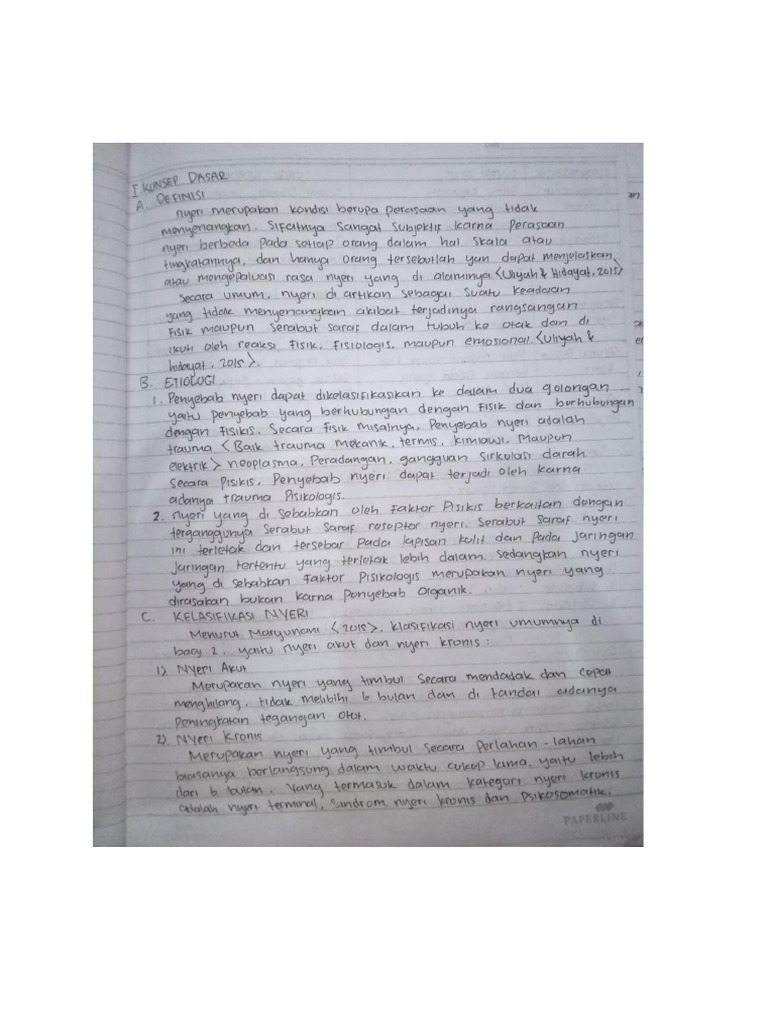 I KONSEP DASAR
A. DEFINISI
nyeri merupakan kondisi berupa perasaan yang tidak
menyenangkan. Sifatnya Sangat Subjektif karna Perasaan
nyeri berbeda Pada setiap orang dalam hal skala atau
tingkatannya, dan hanya orang tersebutlah yan dapat menjelaskan
atau mengepaluasi rasa nyeri yang di alaminya <Uliyah & Hidayat, 2015>
Secara umum, nyeri di artikan sebagai Suatu keadaan
yang tidak menyenangkan akibat terjadinya rangsangan
Fisik maupun Serabut Saraf dalam tubuh ke otak dan di
ikuti oleh reaksi Fisik, Fisiologis, maupun emosional. <Uliyah &
hidayat, 2015>.
B. ETIOLOGI
1. Penyebab nyeri dapat dikelasifikasikan ke dalam dua golongan
yaitu penyebab yang berhubungan dengan Fisik dan berhubungan
dengan Fisikis. Secara fisik misalnya, Penyebab nyeri adalah
trauma <Baik trauma mekanik, termis, kimiawi, Maupun
elektrik> neoplasma, Peradangan, gangguan Sirkulasi darah
Secara Pisikis, Penyebab nyeri dapat terjadi oleh karna
adanya trauma Pisikologis.
2. nyeri yang di sebabkan oleh Faktor Pisikis berkaitan dengan
terganggunya Serabut Saraf reseptor nyeri. Serabut Saraf nyeri
ini terletak dan tersebar Pada lapisan kulit dan Pada Jaringan
Jaringan tertentu yang terletak lebih dalam. Sedangkan nyeri
yang di sebabkan Faktor Pisikologis merupakan nyeri yang
dirasakan bukan karna Penyebab Organik.
C. KELASIFIKASI NYERI
Menurut Maryunani <2015>, klasifikasi nyeri umumnya di
bagi 2. yaitu nyeri akut dan nyeri kronis :
1) Nyeri Akut
Merupakan nyeri yang timbul Secara mendadak dan cepat
menghilang, tidak melibihi 6 bulan dan di tandai adanya
Peningkatan tegangan otot.
2) Nyeri Kronis
Merupakan nyeri yang timbul Secara Perlahan-lahan
biasanya berlangsung dalam waktu cukup lama, yaitu lebih
dari 6 bulan. Yang termasuk dalam kategori nyeri kronis
adalah nyeri terminal, Sindrom nyeri kronis dan Psikosomatik.
PAPERLINE